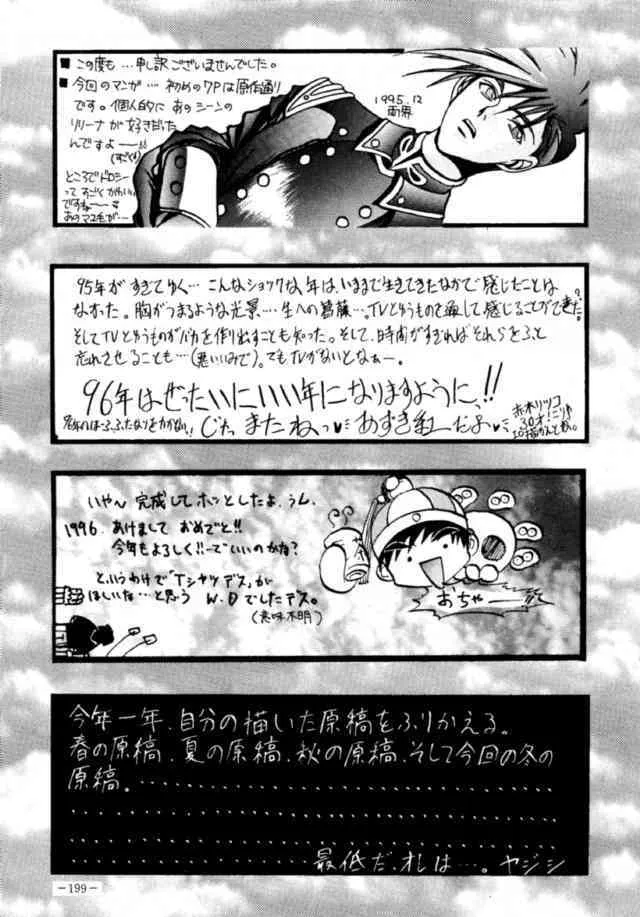 ■ この度も…申し訳ございませんでした。
■ 今回のマンガ…初めの7Pは原作通り
です。個人的にあのシーンの
リリーナが好きだった
んですよ——!!
ところでドロシー
ってすごくかわいい
ですね——
あのマユ毛が…
1995.12
95年がすぎてゆく…こんなショックな年は、いままで生きてきたなかで感じたことは
なかった。胸がつまるような光景…生への葛藤…。TVというもので通して感じることができた。
そしてTVというものがバカを作り出すことも知った。そして、時間がすぎればそれらをふと
忘れさせることも…(悪いいみで)。でもTVがないとなぁー。
96年はぜったいにいい年になりますように!!
じゃ またねっ♥ あずき紅だよ♥
赤木リツコ
30才!
いやん 完成してホッとしたよ、うん。
1996. あけまして おめでと!!
今年もよろしく!!ーでいいのかな?
というわけで「Tシャツデス」が
ほしいな…と思う W.Dでしたデス。
(意味不明)
おちゃー
今年一年、自分の描いた原稿をふりかえる。
春の原稿、夏の原稿、秋の原稿、そして今回の冬の
原稿。……………………………………
……………………………………………
……………………………………………
………………………最低だ、オレは…。ヤジシ
－199－